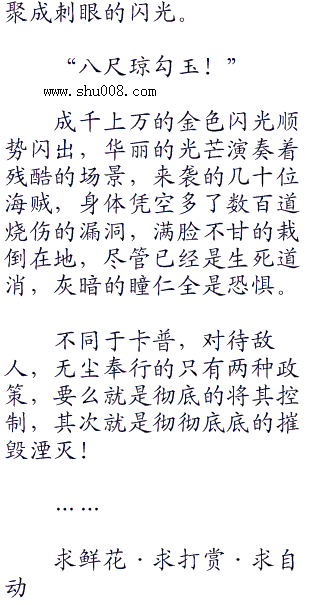 聚成刺眼的闪光。
“八尺琼勾玉！”
www.shu008.com
成千上万的金色闪光顺
势闪出，华丽的光芒演奏着
残酷的场景，来袭的几十位
海贼，身体凭空多了数百道
烧伤的漏洞，满脸不甘的栽
倒在地，尽管已经是生死道
消，灰暗的瞳仁全是恐惧。
不同于卡普，对待敌
人，无尘奉行的只有两种政
策，要么就是彻底的将其控
制，其次就是彻彻底底的摧
毁湮灭！
……
求鲜花·求打赏·求自
动